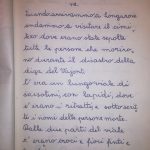 Quando arrivammo a Longarone
andammo a visitare il cimi,
tero dove erano state sepolte
tutte le persone che moriro,
no durante il disastro della
diga del Vajont.
C'era un lungo viale di
sassolini, con lapidi, dove
c'erano i ritratti e sottoscrit,
ti i nomi delle persone morte.
Dalle due parti del viale
c'erano croci e fiori finti e